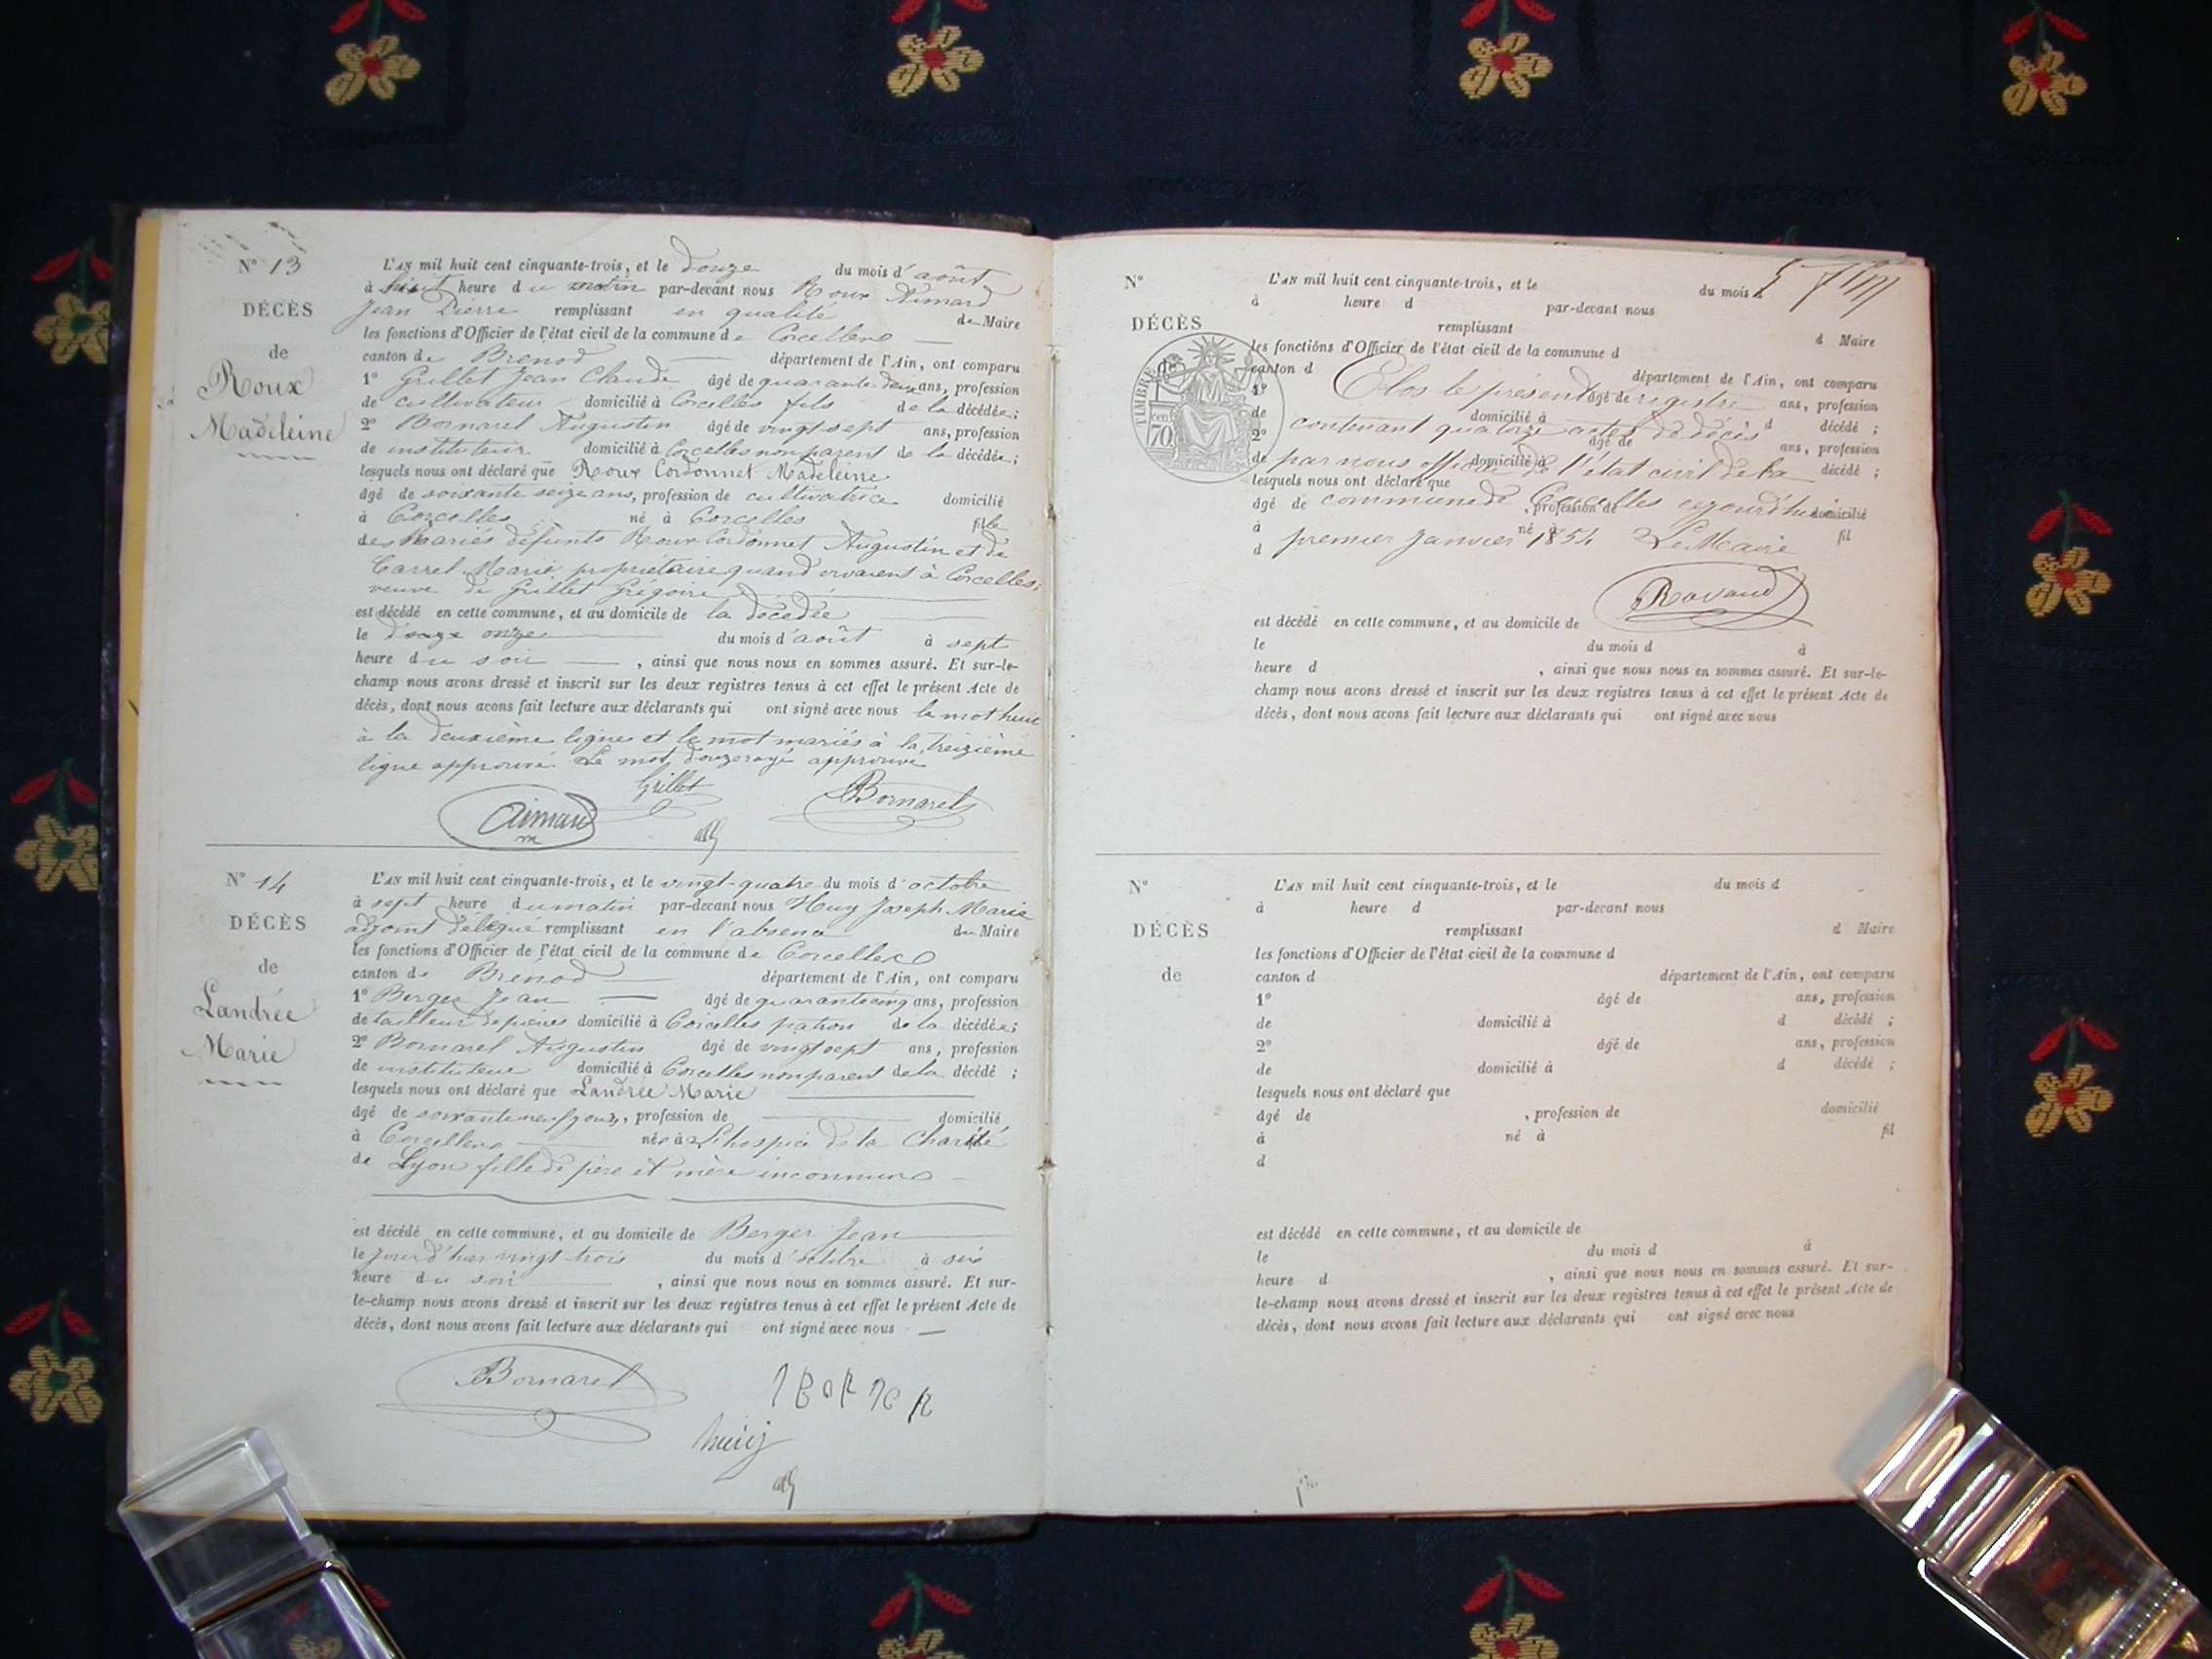 N° 13
DÉCÈS
de
Roux
Madeleine
L'AN mil huit cent cinquante-trois, et le douze du mois d'août
à huit heure du matin par-devant nous Roux Aimard
Jean Pierre remplissant en qualité de Maire
les fonctions d'Officier de l'état civil de la commune de Corcelles
canton de Brenod département de l'Ain, ont comparu
1° Grillet Jean Claude âgé de quarante deux ans, profession
de cultivateur domicilié à Corcelles fils de la décédée ;
2° Bornarel Augustin âgé de vingt sept ans, profession
de instituteur domicilié à Corcelles non parent de la décédée ;
lesquels nous ont déclaré que Roux Cordonnet Madeleine
âgé de soixante seize ans, profession de cultivatrice domicilié
à Corcelles né à Corcelles fille
des mariés défunts Roux Cordonnet Augustin et de
Carrel Marie propriétaire quand vivaient à Corcelles,
veuve de Grillet Grégoire
est décédé en cette commune, et au domicile de la décédée
le douze onze du mois d'août à sept
heure du soir , ainsi que nous nous en sommes assuré. Et sur-le-
champ nous avons dressé et inscrit sur les deux registres tenus à cet effet le présent Acte de
décès, dont nous avons fait lecture aux déclarants qui ont signé avec nous le mot huit
à la deuxième ligne et le mot mariés à la treizième
ligne approuvé. Le mot douze rayé approuvé
Grillet
Aimard Bornarel
N° 14
DÉCÈS
de
Landrée
Marie
L'AN mil huit cent cinquante-trois, et le vingt-quatre du mois d'octobre
à sept heure du matin par-devant nous Huy Joseph Marie
adjoint délégué remplissant en l'absence du Maire
les fonctions d'Officier de l'état civil de la commune de Corcelles
canton de Brénod département de l'Ain, ont comparu
1° Berger Jean âgé de quarante cinq ans, profession
de tailleur de pierres domicilié à Corcelles patron de la décédée ;
2° Bornarel Augustin âgé de vingt sept ans, profession
de instituteur domicilié à Corcelles non parent de la décédé ;
lesquels nous ont déclaré que Landrée Marie
âgé de soixante neuf , profession de domicilié
à Corcelles née à L'hospice de la Charité
de Lyon fille de père et mère inconnus
est décédé en cette commune, et au domicile de Berger Jean
le jour d'hier vingt trois du mois d'octobre à six
heure du soir , ainsi que nous nous en sommes assuré. Et sur-
le-champ nous avons dressé et inscrit sur les deux registres tenus à cet effet le présent Acte de
décès, dont nous avons fait lecture aux déclarants qui ont signé avec nous
Bornarel
huij
N°
DÉCÈS
de
TIMBRE
70
L'AN mil huit cent cinquante-trois, et le du mois d
à heure d par-devant nous
remplissant d Maire
les fonctions d'Officier de l'état civil de la commune d
canton d département de l'Ain, ont comparu
1° Clos le présent registre âgé de ans, profession
de domicilié à d décédé ;
contenant quatorze actes de décès
2° âgé de ans, profession
de domicilié à décédé ;
par nous officier de l'état civil de la
lesquels nous ont déclaré que
âgé de , profession de domicilié
commune de Corcelles cejourd'hui
à né à fil
premier janvier 1854 Le Maire
d
Ravaud
est décédé en cette commune, et au domicile de
le du mois d à
heure d , ainsi que nous nous en sommes assuré. Et sur-le-
champ nous avons dressé et inscrit sur les deux registres tenus à cet effet le présent Acte de
décès, dont nous avons fait lecture aux déclarants qui ont signé avec nous
N°
DÉCÈS
de
L'AN mil huit cent cinquante-trois, et le du mois d
à heure d par-devant nous
remplissant d Maire
les fonctions d'Officier de l'état civil de la commune d
canton d département de l'Ain, ont comparu
1° âgé de ans, profession
de domicilié à d décédé ;
2° âgé de ans, profession
de domicilié à d décédé ;
lesquels nous ont déclaré que
âgé de , profession de domicilié
à né à fil
d
est décédé en cette commune, et au domicile de
le du mois d à
heure d , ainsi que nous nous en sommes assuré. Et sur-
le-champ nous avons dressé et inscrit sur les deux registres tenus à cet effet le présent Acte de
décès, dont nous avons fait lecture aux déclarants qui ont signé avec nous